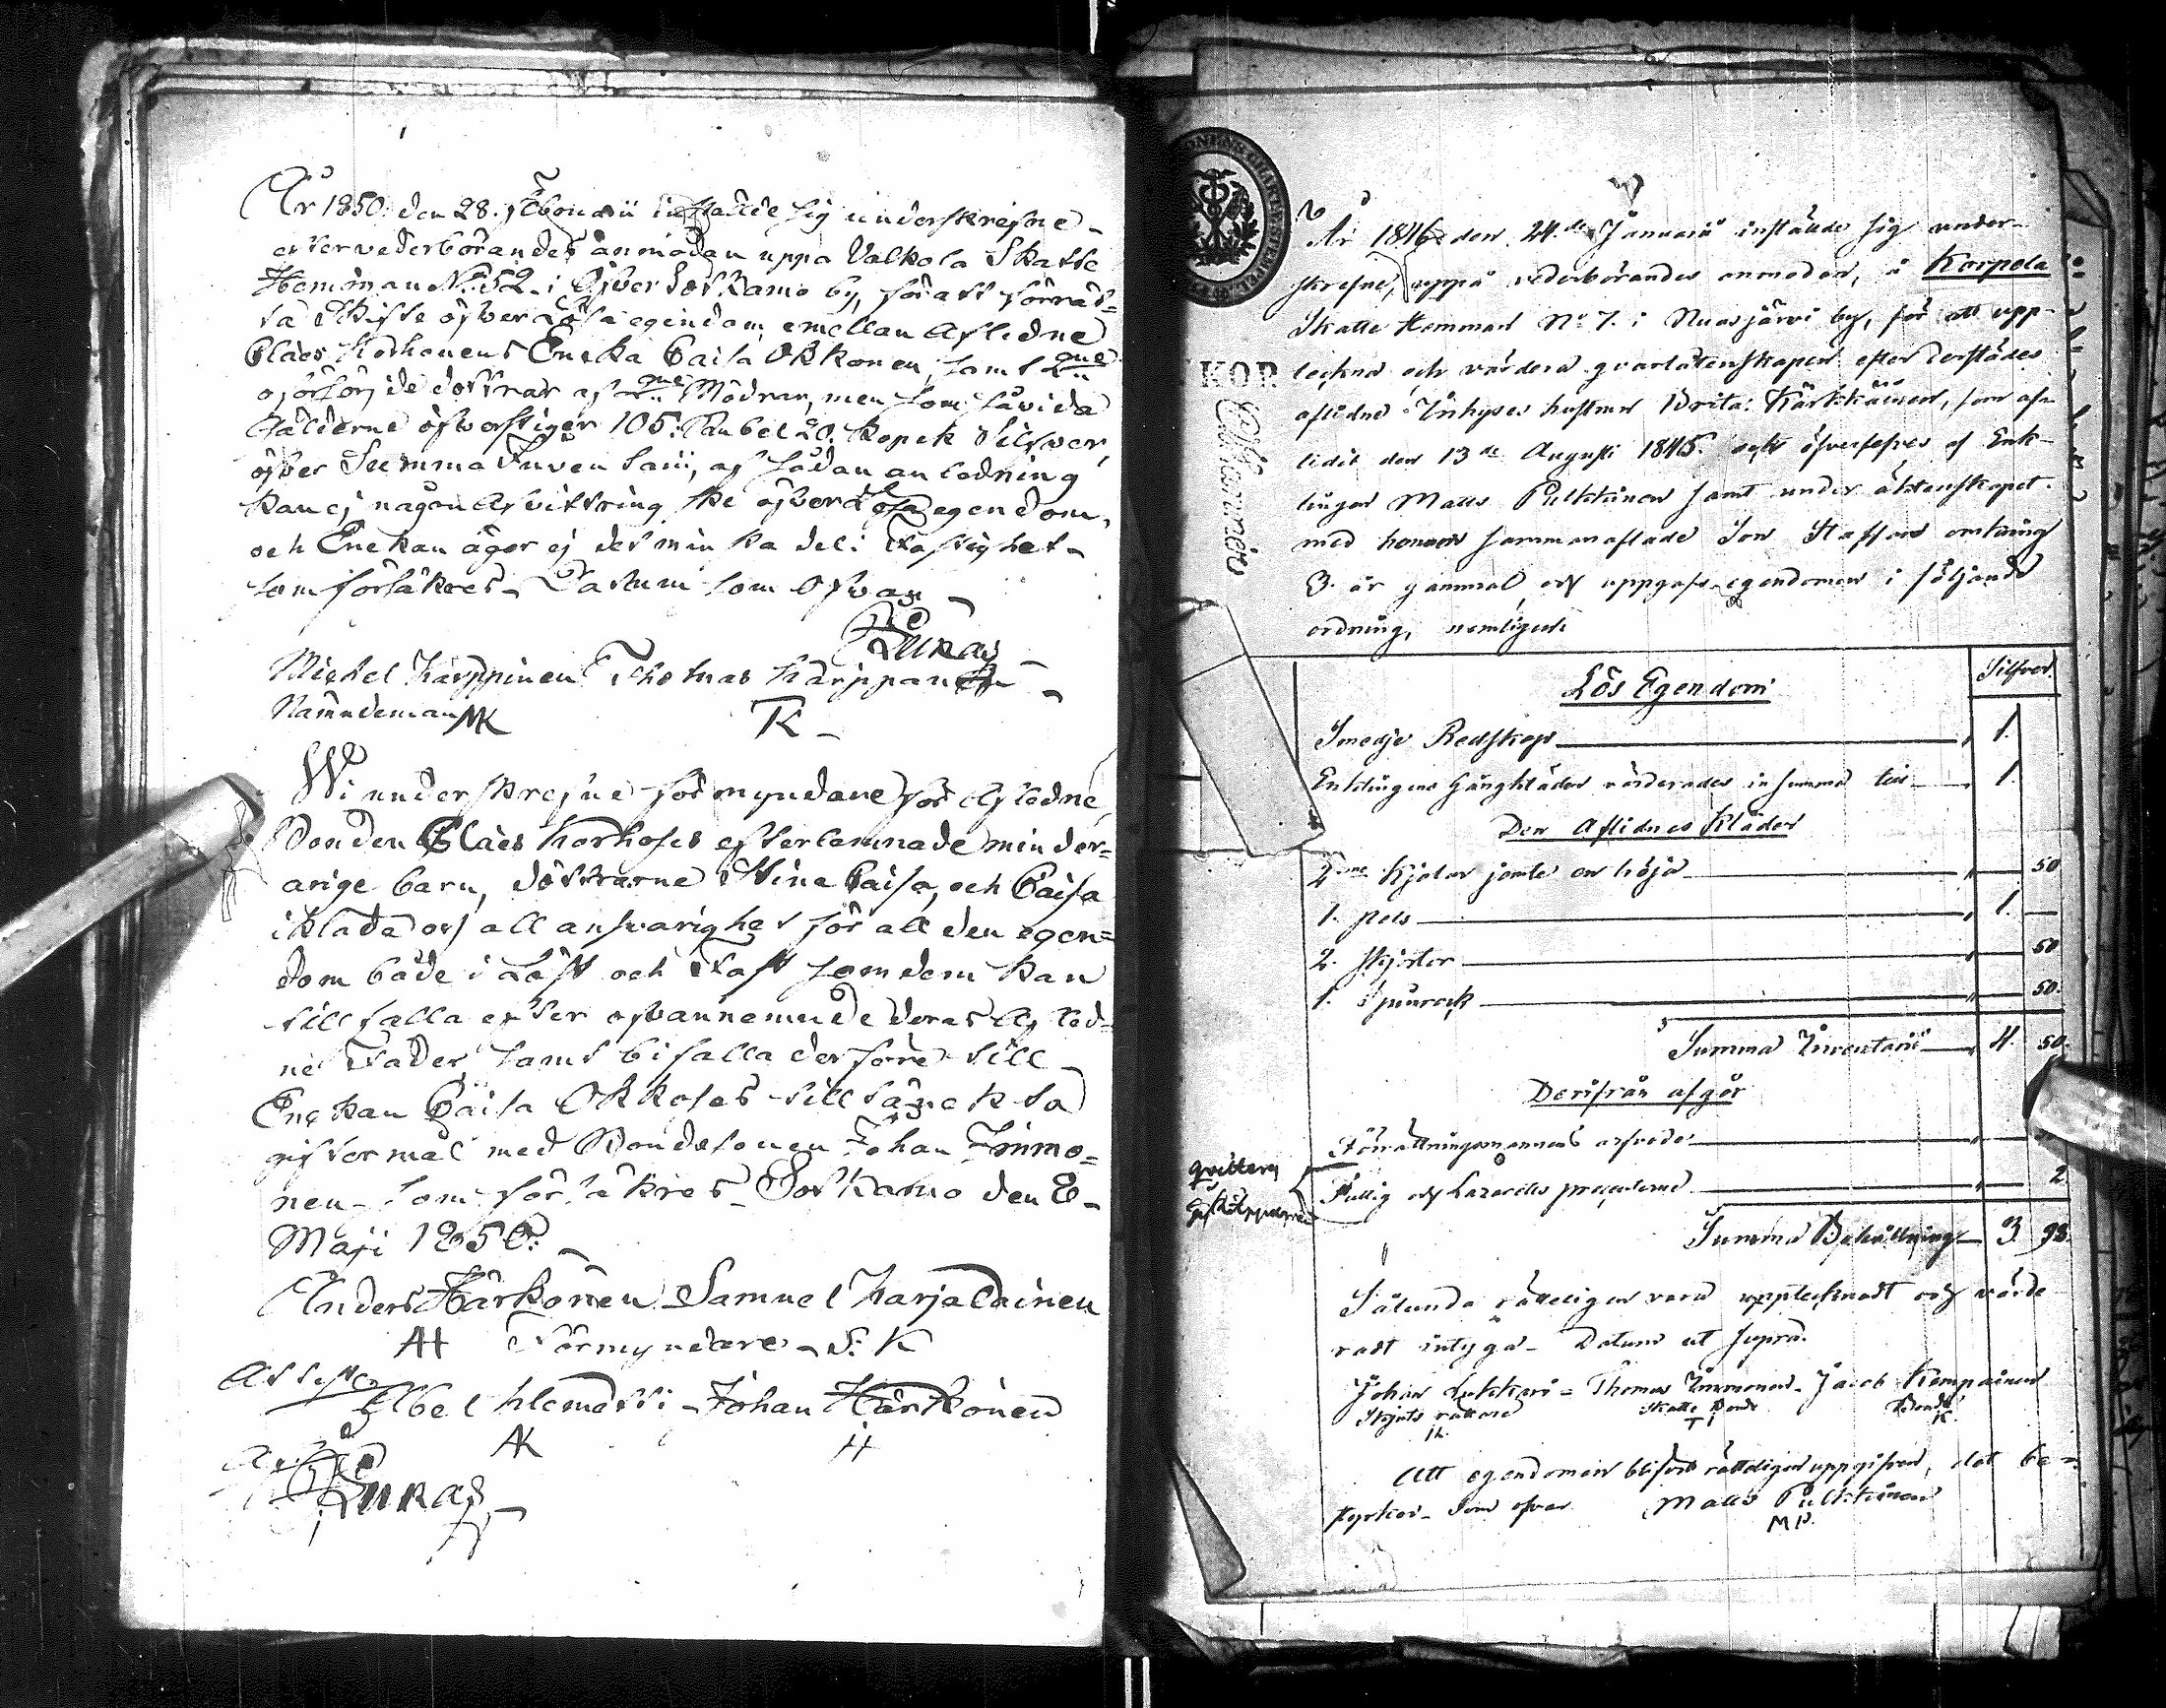 År 1850. den 28. Februarii instälde sig underskrefne
efter vederbörandes anmodan uppå Valkola Skatte
Hemman No. 52. i Öfver Sotkamo by, för att förrät-
ta Skifte öfver Lösa egendom emellan Aflidne
Claes Korhonens Encka Caisa Okkonen, samt 2ne
oförsörjde döttrar af 2ne Mödrar, men som såvida
Gälderne öfverstiger 105: Rubel 20. Kopek Silfver,
öfver Summa Inventarii, af sådan anledning
kan ej någon Afvittring ske öfver Lösa egendom,
och Enckan äger ej det minsta del i Fastighet
som försäkres. Datum som Ofvan
Lukas
Michel Karppinen Thomas Karppanen
Nämndeman MK TK
Wi underskrefne förmyndare för Aflidne
Bonden Claes Korhoses efterlemnade minder-
årige barn, döttrarne Stina Caisa, och Caisa
iklada oss all answarighet för all den egen-
dom både i Löst och Fast som dem kan
tillfalla efter ofvannemnde deras Aflid-
ne Fader, samt bifalla derföre till
Enckan Caisa Okkoses tillsänckta
giftermål med Bondesonen Johan Immo-
nen som försäkres Sotkamo den 8
Maji 1850.
Anders Härkönen Samuel Karjalainen
AH Förmyndare S. K
Attestera
Abel Klemetti Johan Härkönen
AK H
Lukas
KOP
År 1846 den 24.de Januarii instälde sig under-
skrefne, uppå vederbörandes anmodan, å Korpela
Skatte Hemman No 7. i Nuasjärvi by, för att upp-
teckna och värdera qvarlåtenskapen efter derstädes
aflidne Inhyses hustrun Brita Kärkkäinen, som afn
lidit den 13de Augusti 1845. och öfverlefves af Enk-
lingen Matts Pulkkinen samt under äktenskapet
med honom sammanaflade Son Staffan omkring
3. år gammal, och uppgafs egendomen i följande
ordning, nemligen
Lös Egendom Silfver.
Smedje Redskap 1.
Enklingens Gångkläder värderades in summa till 1.
Den Aflidnes Kläder
2ne Kjolar jemte en tröja 50
1. pels 1. —
2. skjortor 50
1. Spinrock 50.
Summa Inventarii 4. 50.
Derifrån afgår
Förrättningsmannens arfvode
qvittera
Fattig och Lazaretts procenterne 2
Summa Behållning 3 98.
Sålunda rätteligen vara upptecknadt och värde
radt intyga. Datum ut supra.
Johan Lukkari Thomas Immonen Jacob Kemppainen
Skjuts rättare Skatte Bonde Bonde
TI K
Att egendomen blifvit rätteligen uppgifven, det be-
styrker Som ofvan Matts Pulkkinen
MP.